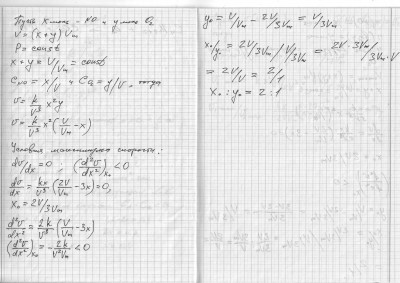 Пусть x моль - NO и y моль O₂
V = (x+y)Vm
P = const
x + y = V/Vm = const
C_NO = x/V и C_O₂ = y/V, тогда
v = k/V³ x²y
v = k/V³ x²(V/Vm - x)
Условия максимальной скорости:
dv/dx = 0 ; (d²v/dx²)x₀ < 0
dv/dx = kx/V³ (2V/Vm - 3x) = 0,
x₀ = 2V/3Vm
d²v/dx² = 2k/V³ (V/Vm - 3x)
(d²v/dx²)x₀ = - 2k/V²Vm < 0
y₀ = V/Vm - 2V/3Vm = V/3Vm
x₀/y₀ = 2V/3Vm / V/3Vm = 2V·3Vm/3Vm·V =
= 2V/V = 2/1
x₀ : y₀ = 2 : 1